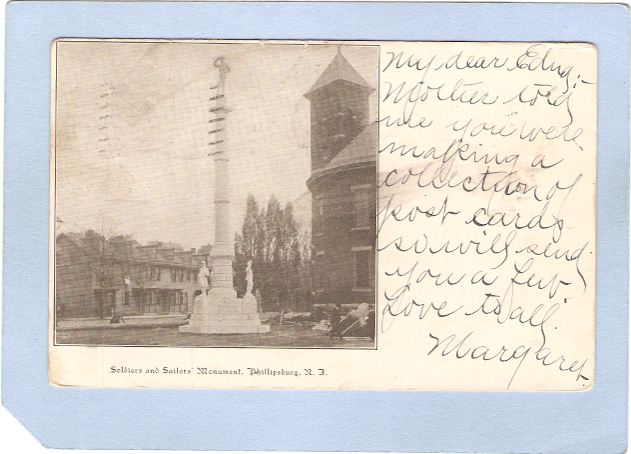 My dear Edna:-
Mother told
me you were
making a
collection of
post cards
so will send
you a few
Love to all.
Margaret.
Soldiers and Sailors' Monument. Phillipsburg. N. J.